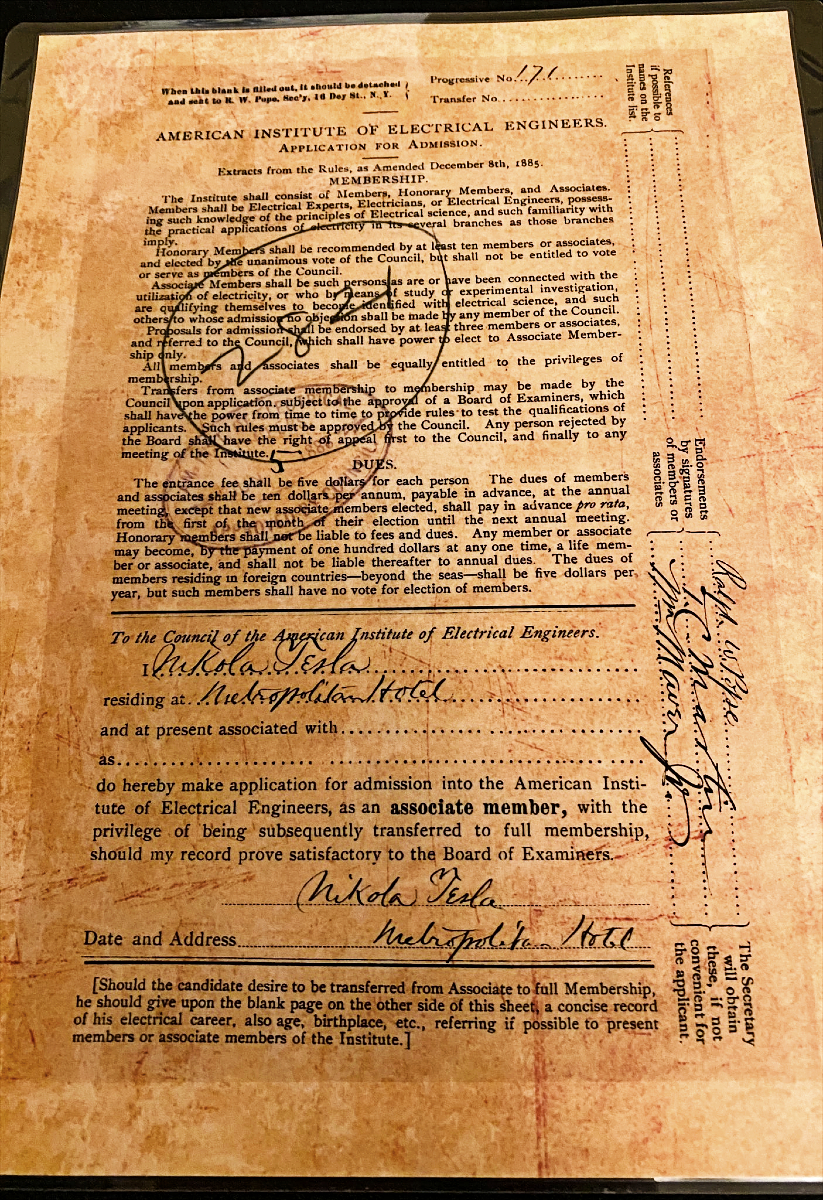 When this blank is filled out, it should be detached
and sent to R. W. Pope, Sec'y, 16 Dey St., N. Y.
Progressive No. 171
Transfer No.
AMERICAN INSTITUTE OF ELECTRICAL ENGINEERS.
APPLICATION FOR ADMISSION.
Extracts from the Rules, as Amended December 8th, 1885.
MEMBERSHIP.
The Institute shall consist of Members, Honorary Members, and Associates.
Members shall be Electrical Experts, Electricians, or Electrical Engineers, possess-
ing such knowledge of the principles of Electrical science, and such familiarity with
the practical applications of electricity in its several branches as those branches
imply.
Honorary Members shall be recommended by at least ten members or associates,
and elected by the unanimous vote of the Council, but shall not be entitled to vote
or serve as members of the Council.
Associate Members shall be such persons as are or have been connected with the
utilization of electricity, or who by means of study or experimental investigation,
are qualifying themselves to become identified with electrical science, and such
others to whose admission no objection shall be made by any member of the Council.
Proposals for admission shall be endorsed by at least three members or associates,
and referred to the Council, which shall have power to elect to Associate Member-
ship only.
All members and associates shall be equally entitled to the privileges of
membership.
Transfers from associate membership to membership may be made by the
Council upon application, subject to the approval of a Board of Examiners, which
shall have the power from time to time to provide rules to test the qualifications of
applicants. Such rules must be approved by the Council. Any person rejected by
the Board shall have the right of appeal first to the Council, and finally to any
meeting of the Institute.
2821
5
DUES.
The entrance fee shall be five dollars for each person The dues of members
and associates shall be ten dollars per annum, payable in advance, at the annual
meeting, except that new associate members elected, shall pay in advance pro rata,
from the first of the month of their election until the next annual meeting.
Honorary members shall not be liable to fees and dues. Any member or associate
may become, by the payment of one hundred dollars at any one time, a life mem-
ber or associate, and shall not be liable thereafter to annual dues. The dues of
members residing in foreign countries—beyond the seas—shall be five dollars per
year, but such members shall have no vote for election of members.
To the Council of the American Institute of Electrical Engineers.
I Nikola Tesla
residing at Metropolitan Hotel
and at present associated with
as
do hereby make application for admission into the American Insti-
tute of Electrical Engineers, as an associate member, with the
privilege of being subsequently transferred to full membership,
should my record prove satisfactory to the Board of Examiners.
Nikola Tesla
Date and Address Metropolitan Hotel
[Should the candidate desire to be transferred from Associate to full Membership,
he should give upon the blank page on the other side of this sheet, a concise record
of his electrical career, also age, birthplace, etc., referring if possible to present
members or associate members of the Institute.]
References
if possible to
names on the
Institute list.
Endorsements
by signatures
of members or
associates
Ralph W Pope
T C Martin
Wm Maver Jr
The Secretary
will obtain
these, if not
convenient for
the applicant.